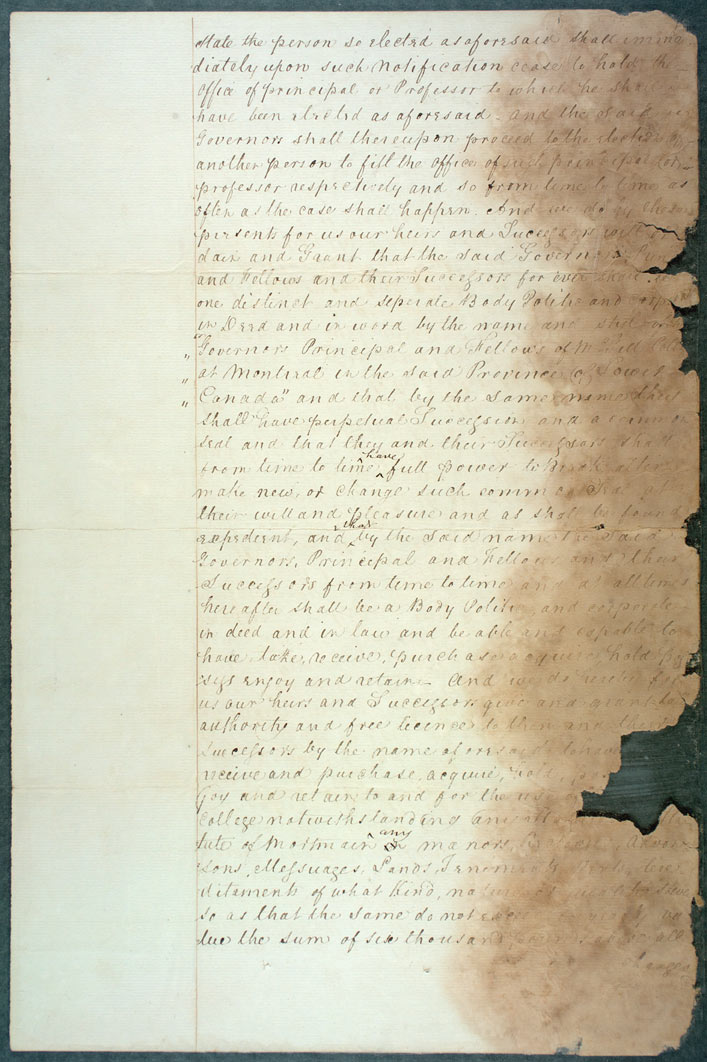 State the person so elected as aforesaid shall imme
diately upon such Notification cease to hold the
Office of principal or Professor to which he shall
have been elected as aforesaid. and the said
Governors shall thereupon proceed to the election of
another person to fill the office of such principal or
professor respectively and so from time to time as
often as the case shall happen. And we do by these
presents for us our heirs and Successors will or
dain and Grant that the said Governors
and Fellows and their Successors for ever shall be
one distinct and seperate Body Politic and
in Deed and in word by the name and
"Governors Principal and Fellows of McGill
" at Montreal in the said Province of Lower
" Canada" and that by the same name they
shall have perpetual Succession and a common
seal and that they and their Successors shall
from time to time have full power to Break alter
make new, or change such common Seal
their will and pleasure and as shall be found
expedient, and that by the said name the said
Governors, Principal and Fellows and their
Successors from time to time and at all times
hereafter shall be a Body Politic and corporate
in deed and in law and be able and capable to
have, take, receive, purchase acquire hold pos
sess enjoy and retain And we do for
us our heirs and Successors give and grant
authority and free licence to them and their
Successors by the name aforesaid to have
receive and purchase, acquire, hold,
joy and retain to and for the use
College notwithstanding any
tute of Mortmain any manors, advow
sons, Messuages, Lands, Tenements,
ditament of what kind, nature
so as that the same do not exceed
lue the sum of six thousand pounds above all